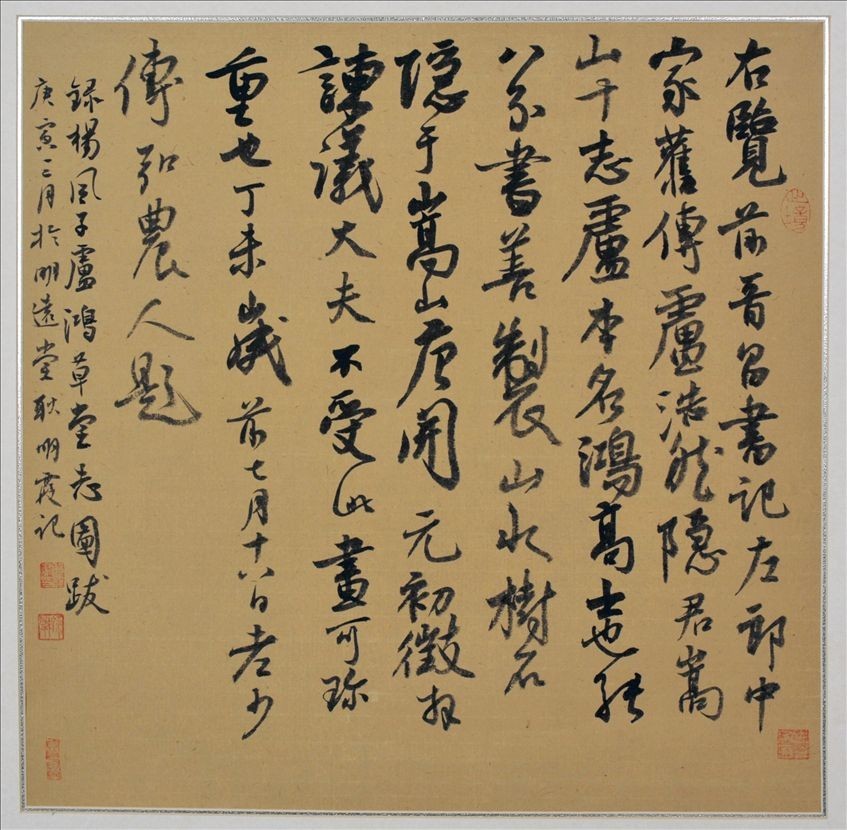 右覽前晉昌書記左郎中
家舊傳盧浩然隱君嵩
山十志盧本名鴻高士也能
八分書善製山水樹石
隱于嵩山唐開元初徵拜
諫議大夫不受此畫可珎
重也丁未歲前七月十八日老少
傅弘農人題
録楊風子盧鴻草堂志圖跋
庚寅二月於明遠堂耿明霞記